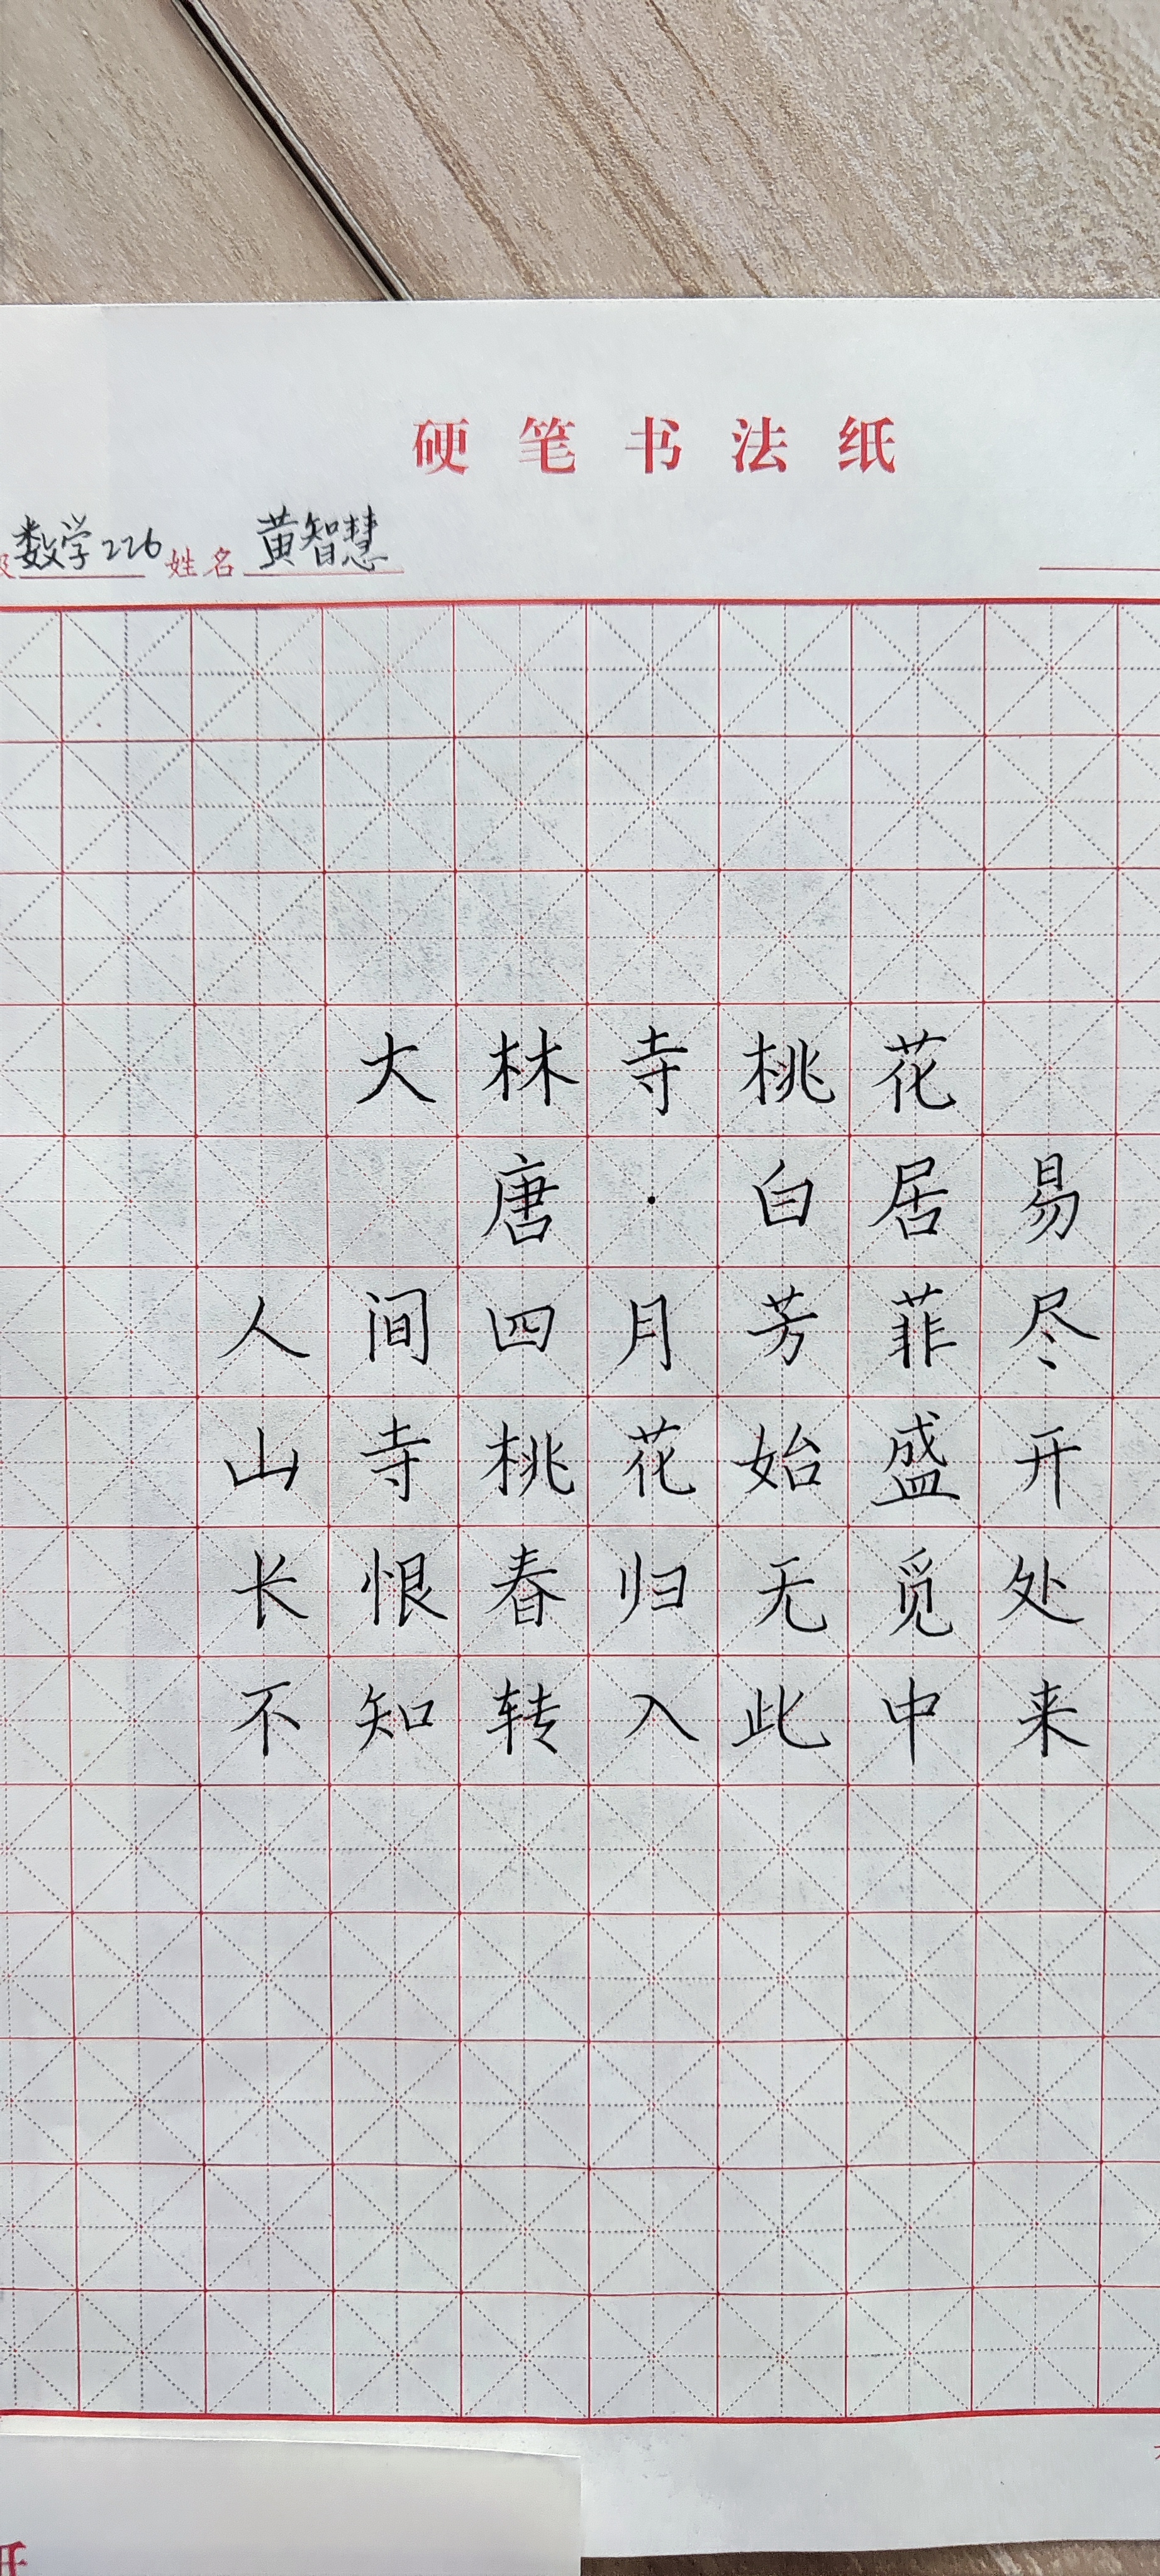 硬笔书法纸
数学226 姓名 黄智慧
大林寺桃花
唐·白居易
人间四月芳菲尽
山寺桃花始盛开
长恨春归无觅处
不知转入此中来